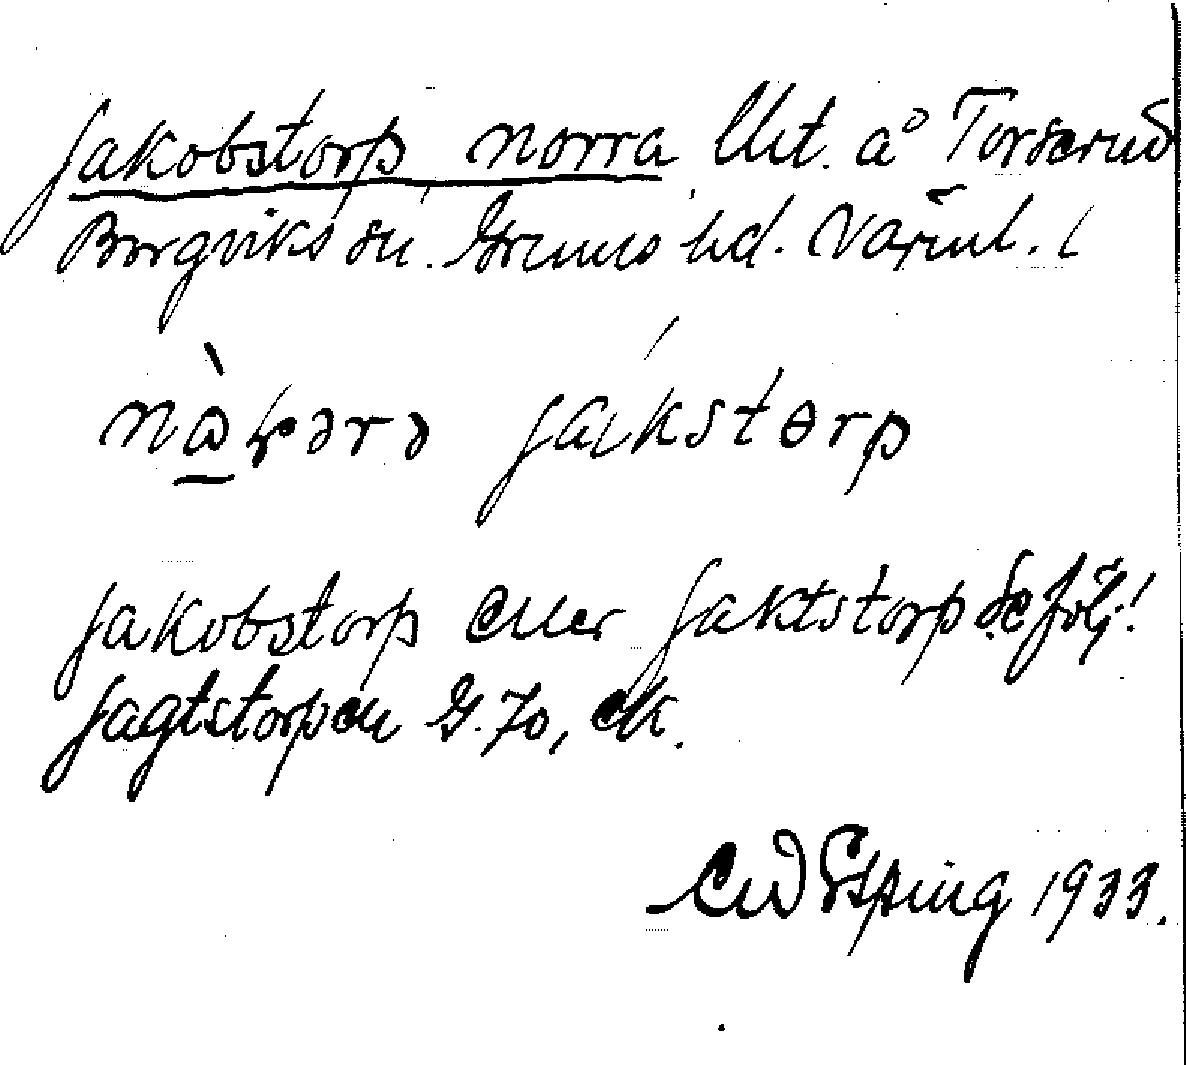 Jakobstorp norra lht. å Torserud
Borgviks sn. Grums hd. Värml. l
nɷ̀ɽərə jákstɵrp
Jakobstorp eller Jaktstorp se följ.!
Jagtstorpen G. Jo, ek.
Ewd Elfping 1933.